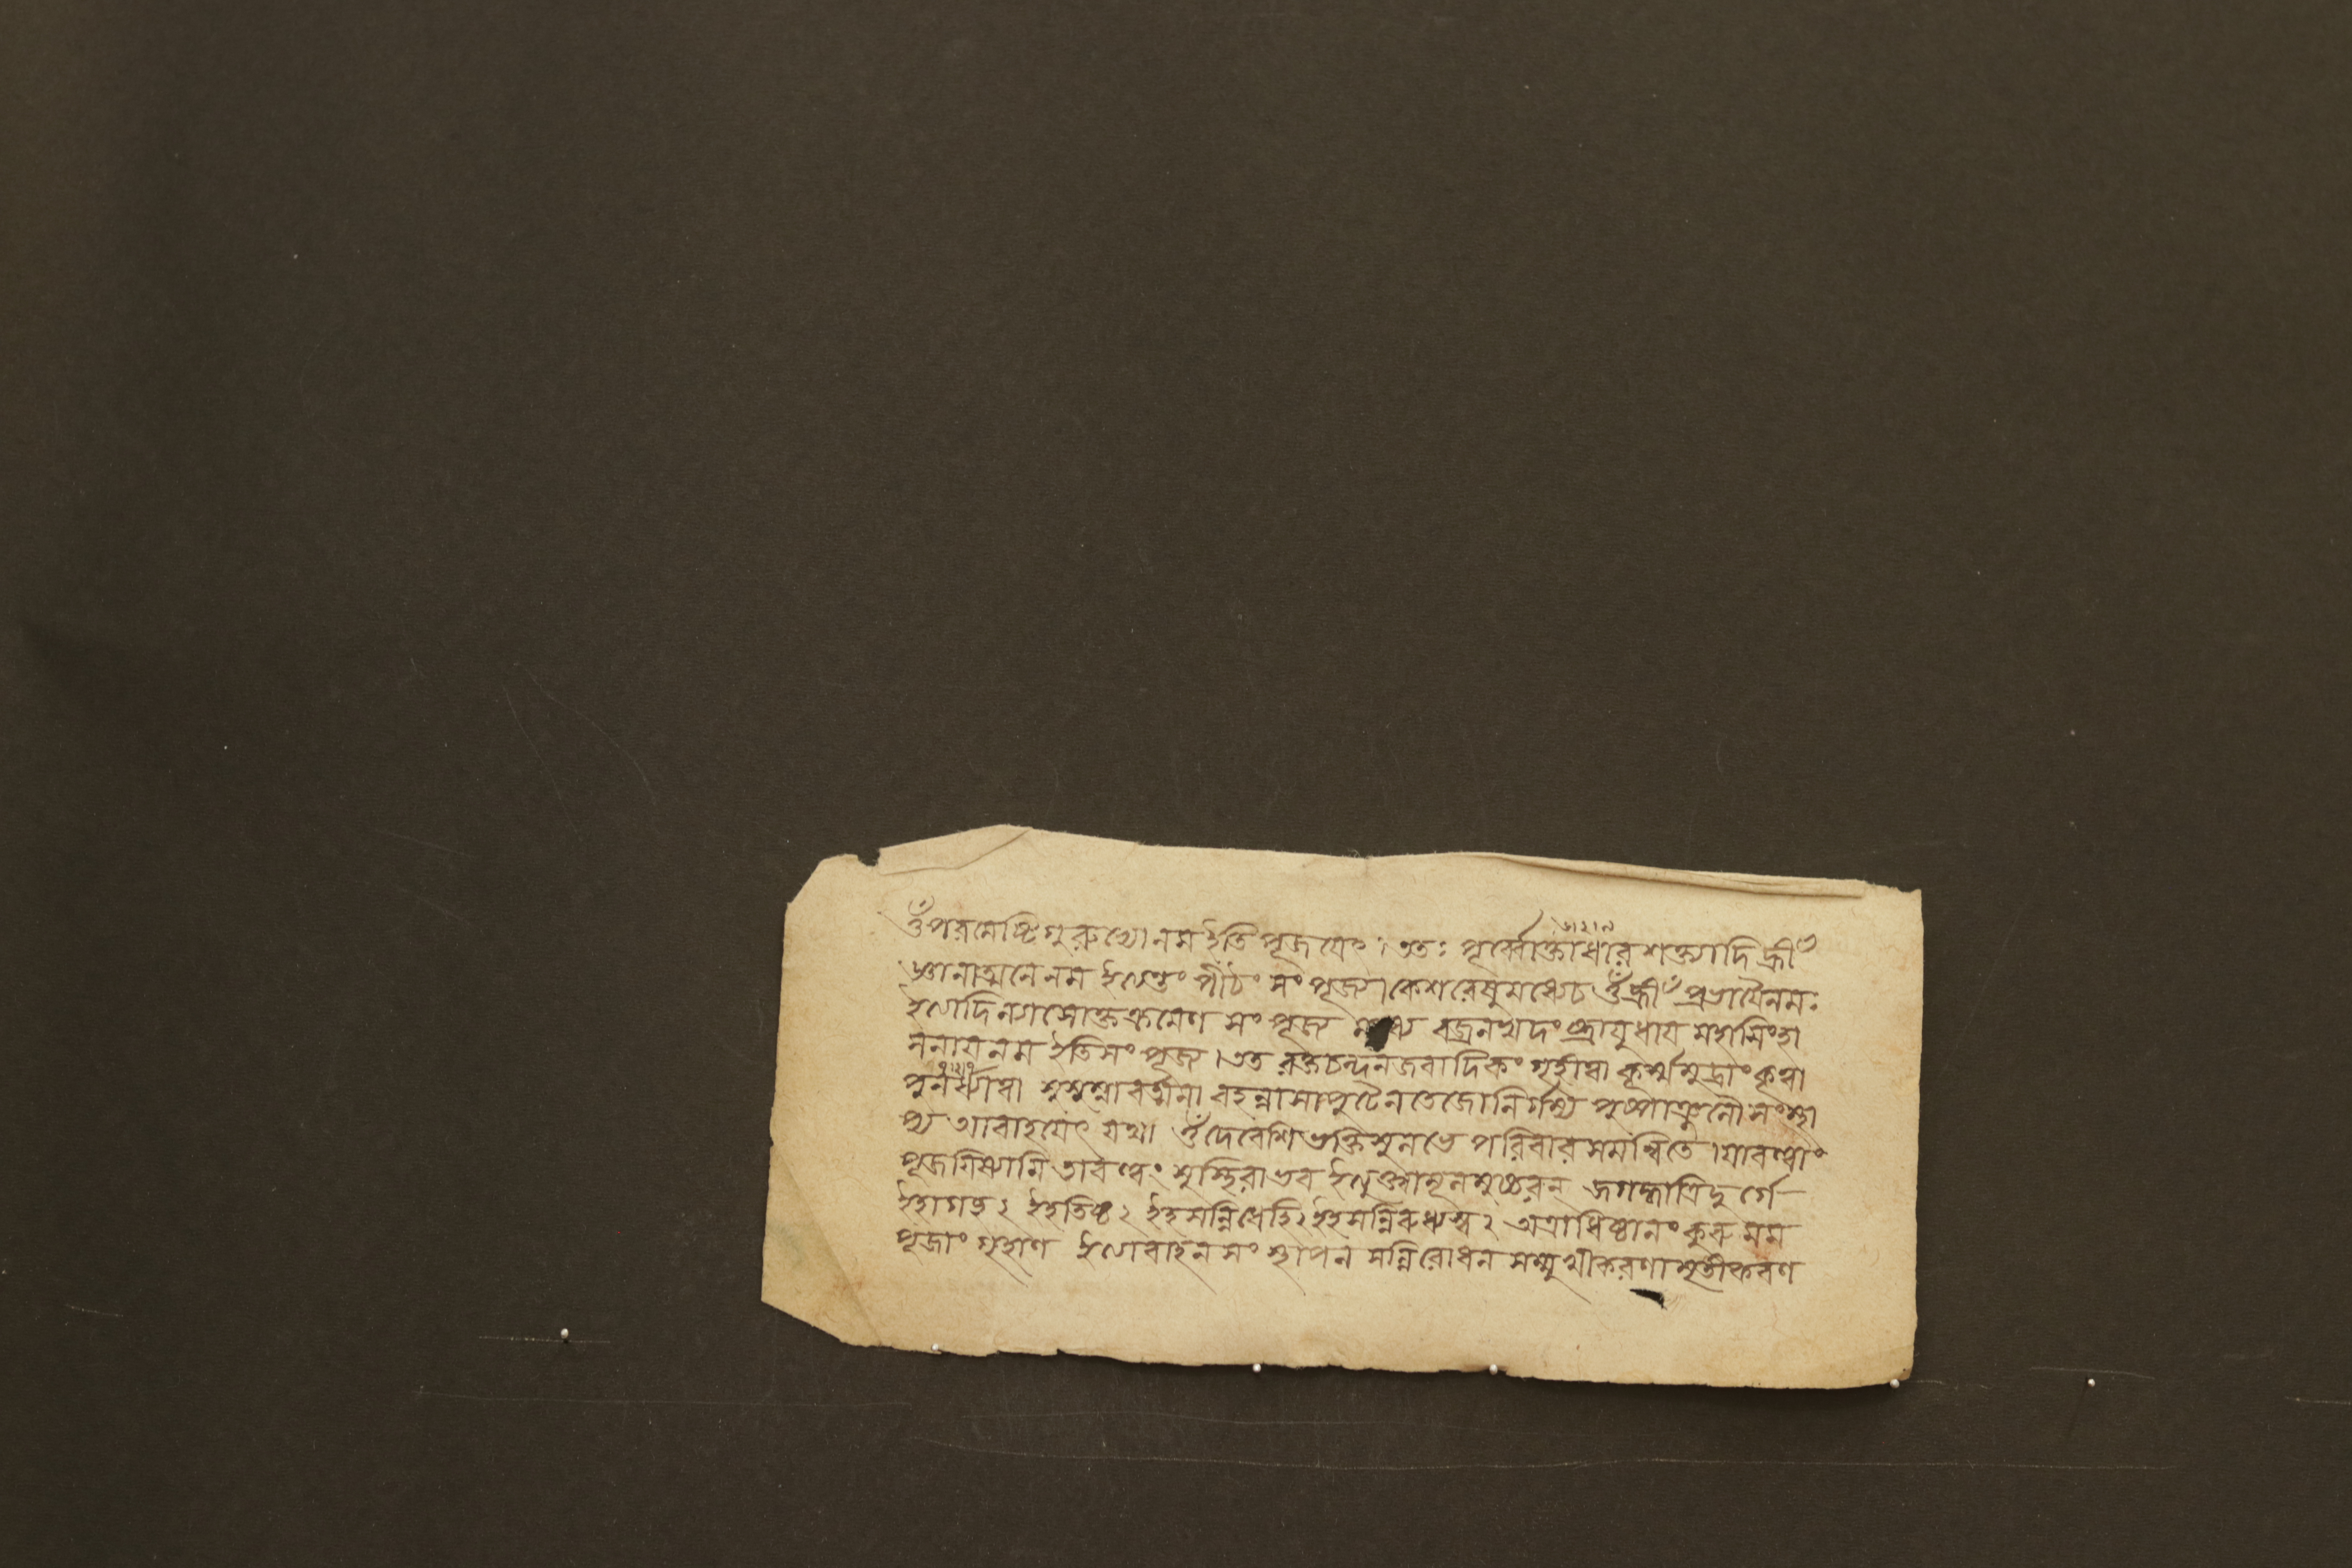 ওঁ পরমেষ্টিগুরুভ্যো নম ইতি পূজয়েৎ । তত্তঃ পূর্ব্বোক্তাধারশক্ত্যাদি হ্রীঁ
জ্ঞানাত্মনে নম ইত্যন্তং পীঠং সং পূজ্য । কেশরেষু মধ্যে চ ওঁ হ্রীঁ প্রভায়ৈ নমঃ
ইত্যাদি ন্যাসোক্তক্রমেণ সং পূজ্য বজ্রনখদংষ্ট্রায়ুধায় মহাসিংহা
সনায় নম ইতি সং পূজ্য । তত রক্তচন্দনজবাদিকং গৃহীত্বা কূর্ম্মমুদ্রাং কৃত্বা
পুনর্ধ্যাত্বা সুষুম্নাবর্ত্মনা বহন্নাসাপুটেন তেজো নির্গময্য পুষ্পাঞ্জলৌ সংস্থা
প্য আবাহয়েৎ যথা ওঁ দেবেশি ভক্তিসুলভে পরিবারসমন্বিতে । যাবত্ত্বাং
পূজয়িষ্যামি তাবত্ত্বং সুস্থিরা ভব ইত্যুক্ত্বা মূলমুচ্চরন্ জগদ্ধাত্রি দুর্গে
ইহাগচ্ছ ২ ইহ তিষ্ঠ ২ ইহ সন্নিধেহি ২ ইহ সন্নিরুধ্যস্ব ২ অত্রাধিষ্ঠানং কুরু মম
পূজাং গৃহাণ ইত্যাবাহন সং স্থাপন সন্নিরোধন সম্মুখীকরণামৃতীকরণ